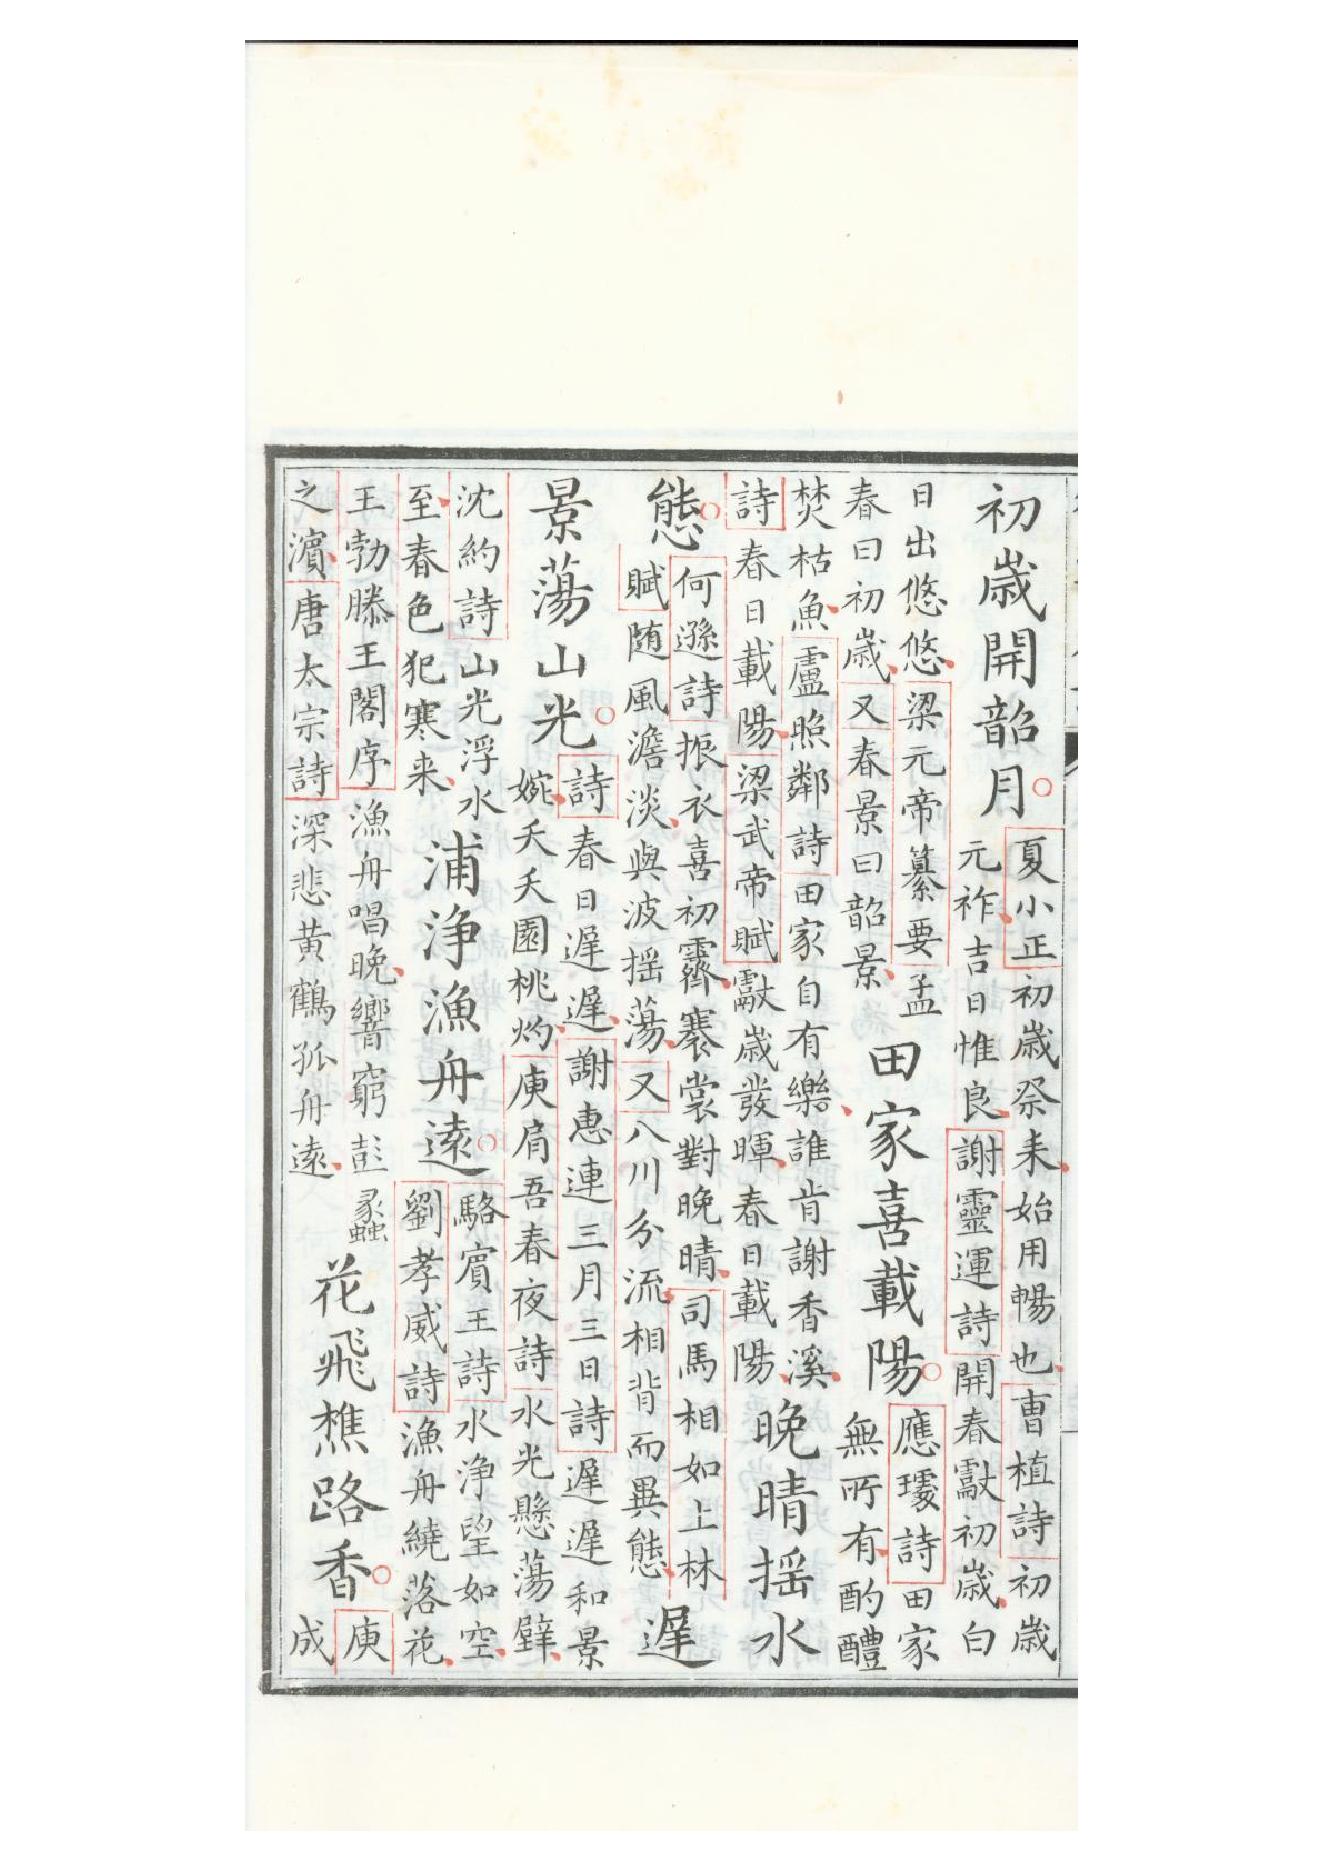 初歳開韶月
夏小正初歳祭耒始用暢也曹植詩初歳
元祚吉日惟良謝靈運詩開春獻初歳白
日出悠悠梁元帝纂要孟
春曰初歳又春景曰韶景
田家喜載陽
應璩詩田家
無所有酌醴
焚枯魚盧照鄰詩田家自有樂誰肯謝香溪
詩春日載陽梁武帝賦獻歳發暉春日載陽
晚晴揺水
態
何遜詩振衣喜初霽褰裳對晚晴司馬相如上林
賦随風澹淡與波揺蕩又八川分流相背而異態
遲
景蕩山光
詩春日遲遲謝惠連三月三日詩遲遲和景
婉夭夭園桃灼庾肩吾春夜詩水光懸蕩壁
沈約詩山光浮水
至春色犯寒来
浦浄漁舟遠
駱賓王詩水浄望如空
劉孝威詩漁舟繞落花
王勃滕王閣序漁舟唱晚響窮彭蠡
之濱唐太宗詩深悲黃鶴孤舟遠
花飛樵路香
庾
成